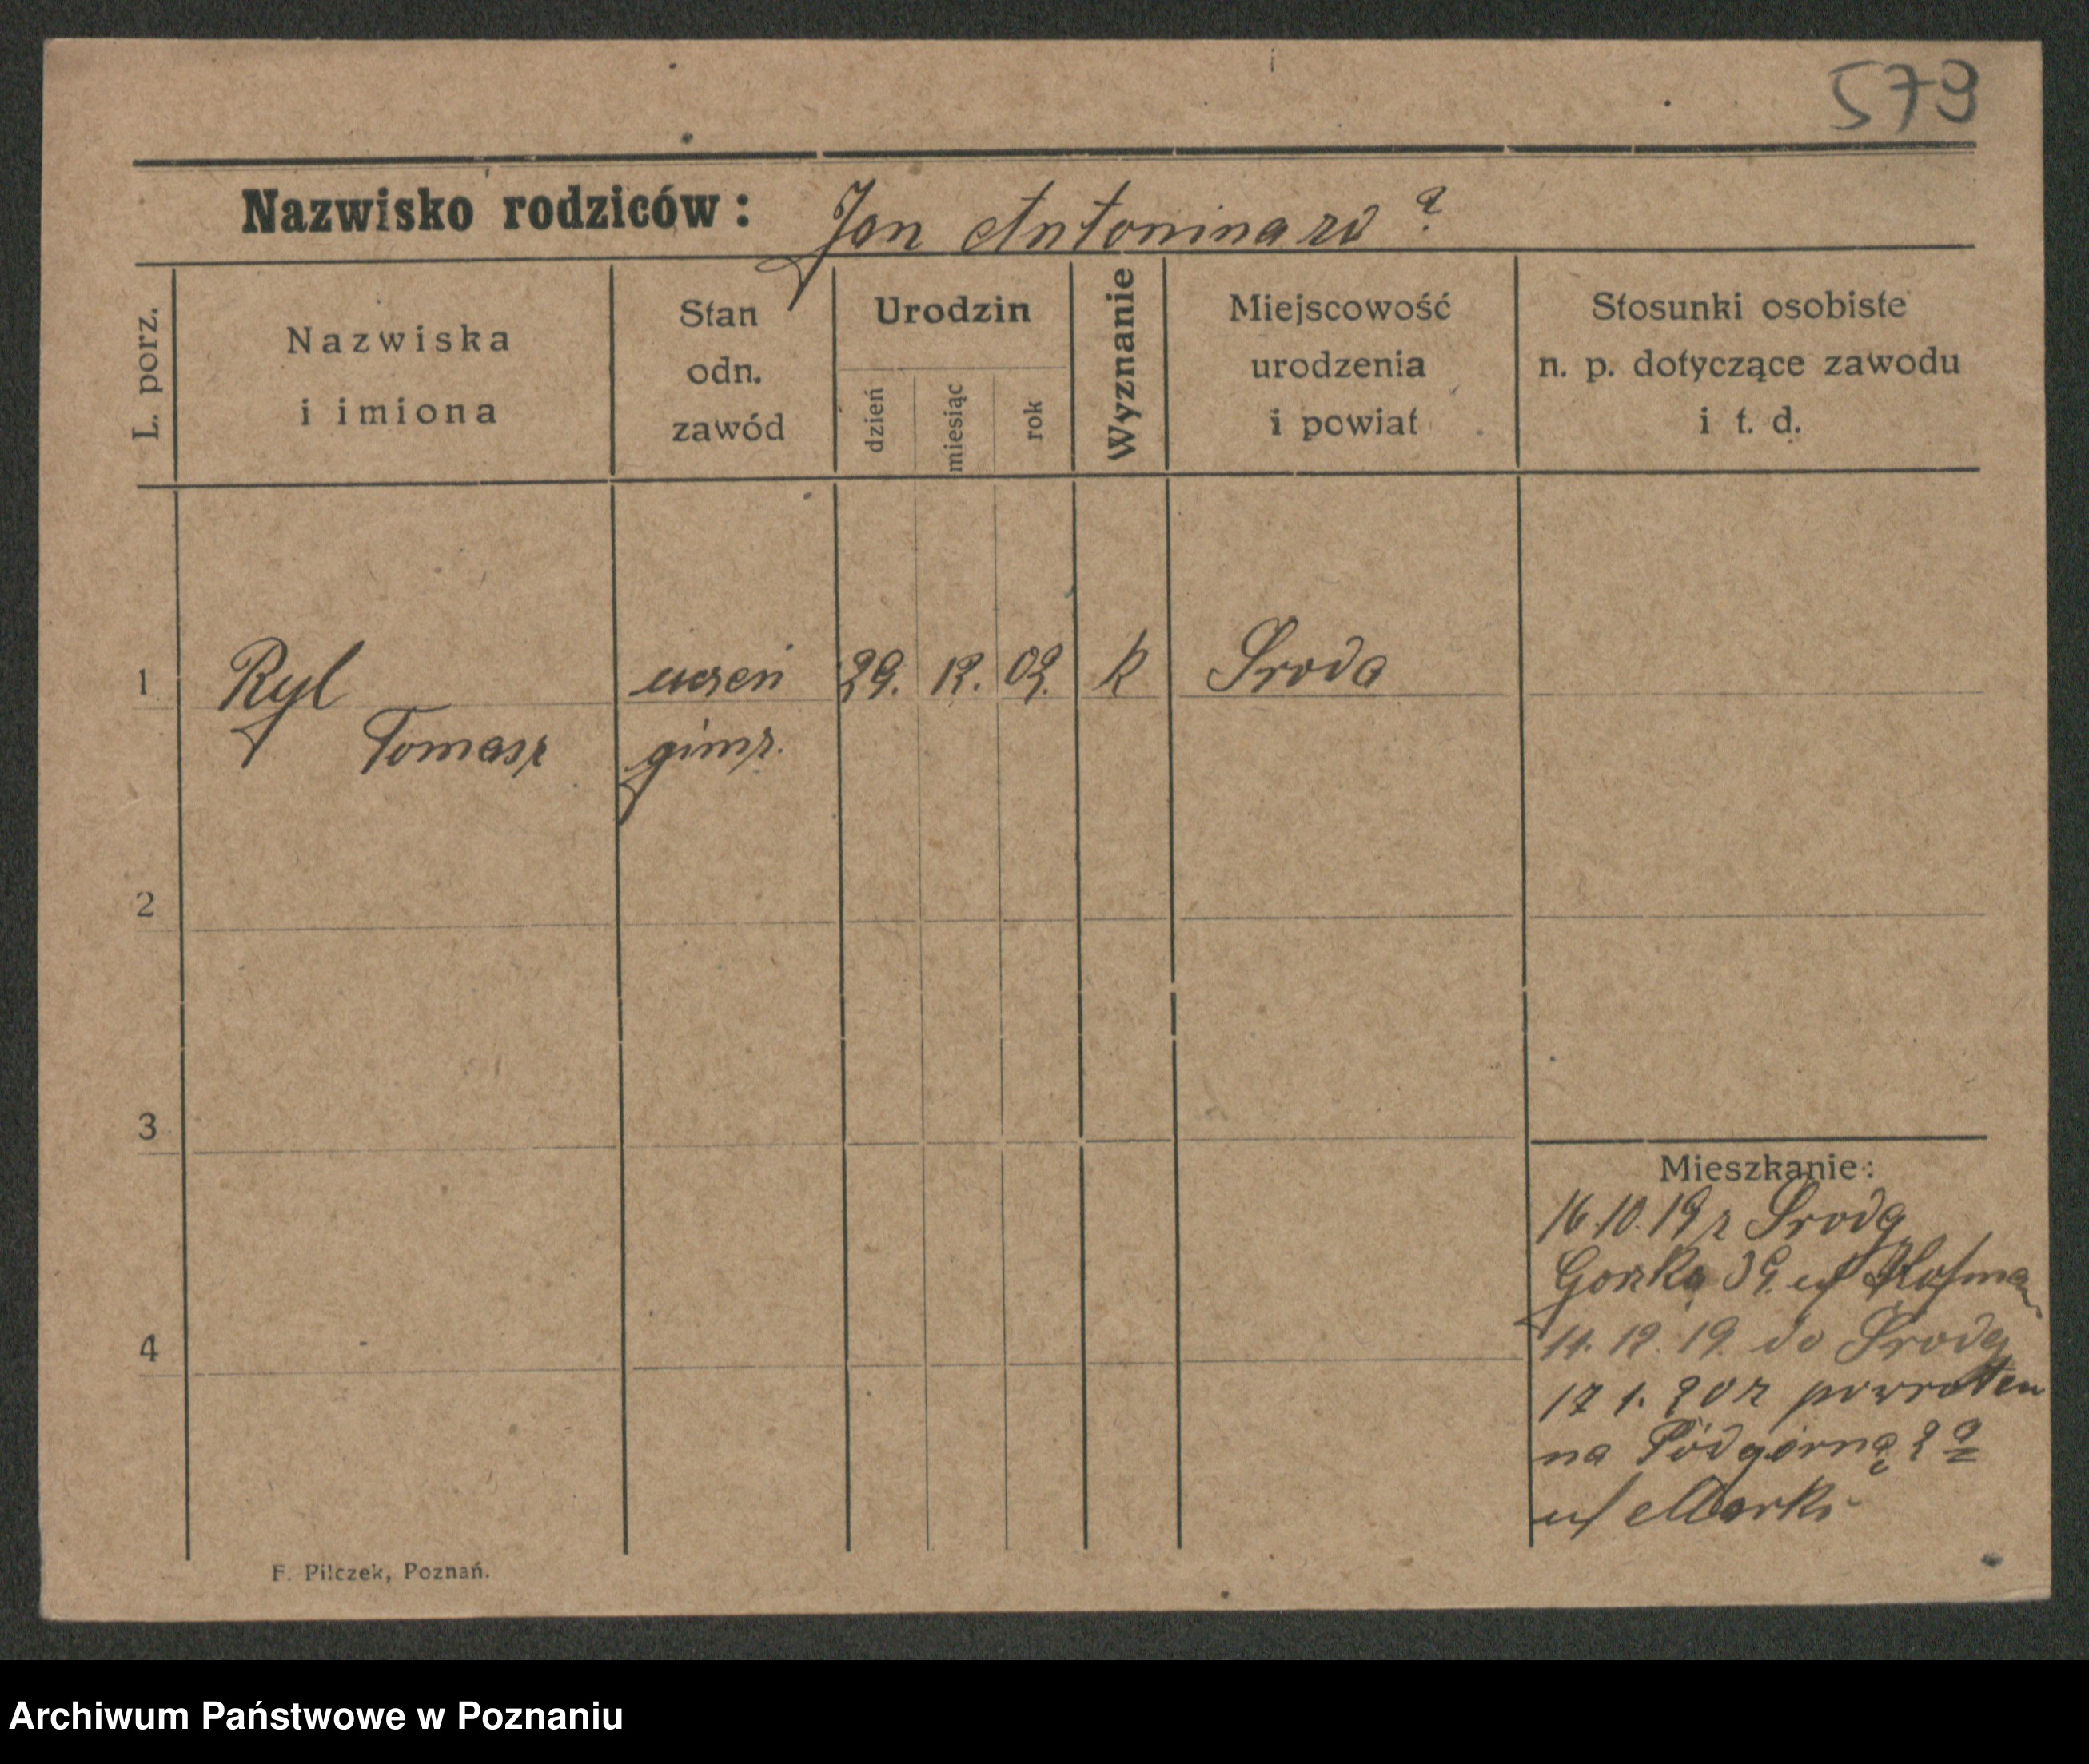 573
Nazwisko rodziców: Jan Antonina zd ?
L. porz.
Nazwiska
i imiona
Stan
odn.
zawód
Urodzin
dzień
miesiąc
rok
Wyznanie
Miejscowość
urodzenia
i powiat
Stosunki osobiste
n. p. dotyczące zawodu
i t. d.
1 Ryl uczeń 29. 12. 02. k Sroda
Tomasz gimz.
2
3
4
Mieszkanie:
16.10.19 r Sroda
39. u/
11. 12. 19. do Sroda
17 1. 20 r powrotem
na Podgórną 2 a
u/ Marki
F. Pilczek, Poznań.
Archiwum Państwowe w Poznaniu